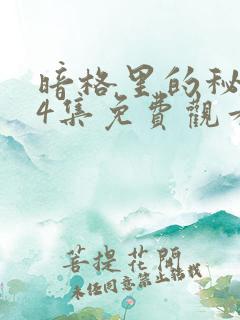 暗格里的秘
4集免費觀
菩提花開
未经同意禁止转载